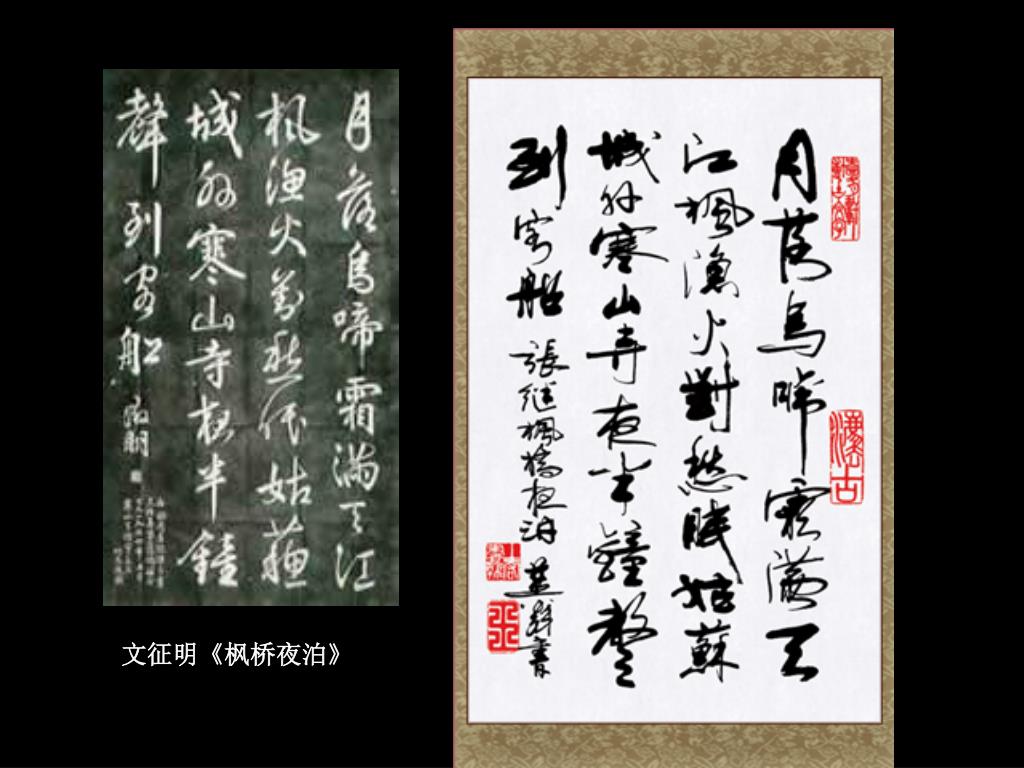 月落烏啼霜滿天江
楓漁火對愁眠姑蘇
城外寒山寺夜半鐘
聲到客船
文征明《枫桥夜泊》
月落烏啼霜滿天
江楓漁火對愁眠姑蘇
城外寒山寺夜半鐘聲
到客船
張继楓橋夜泊